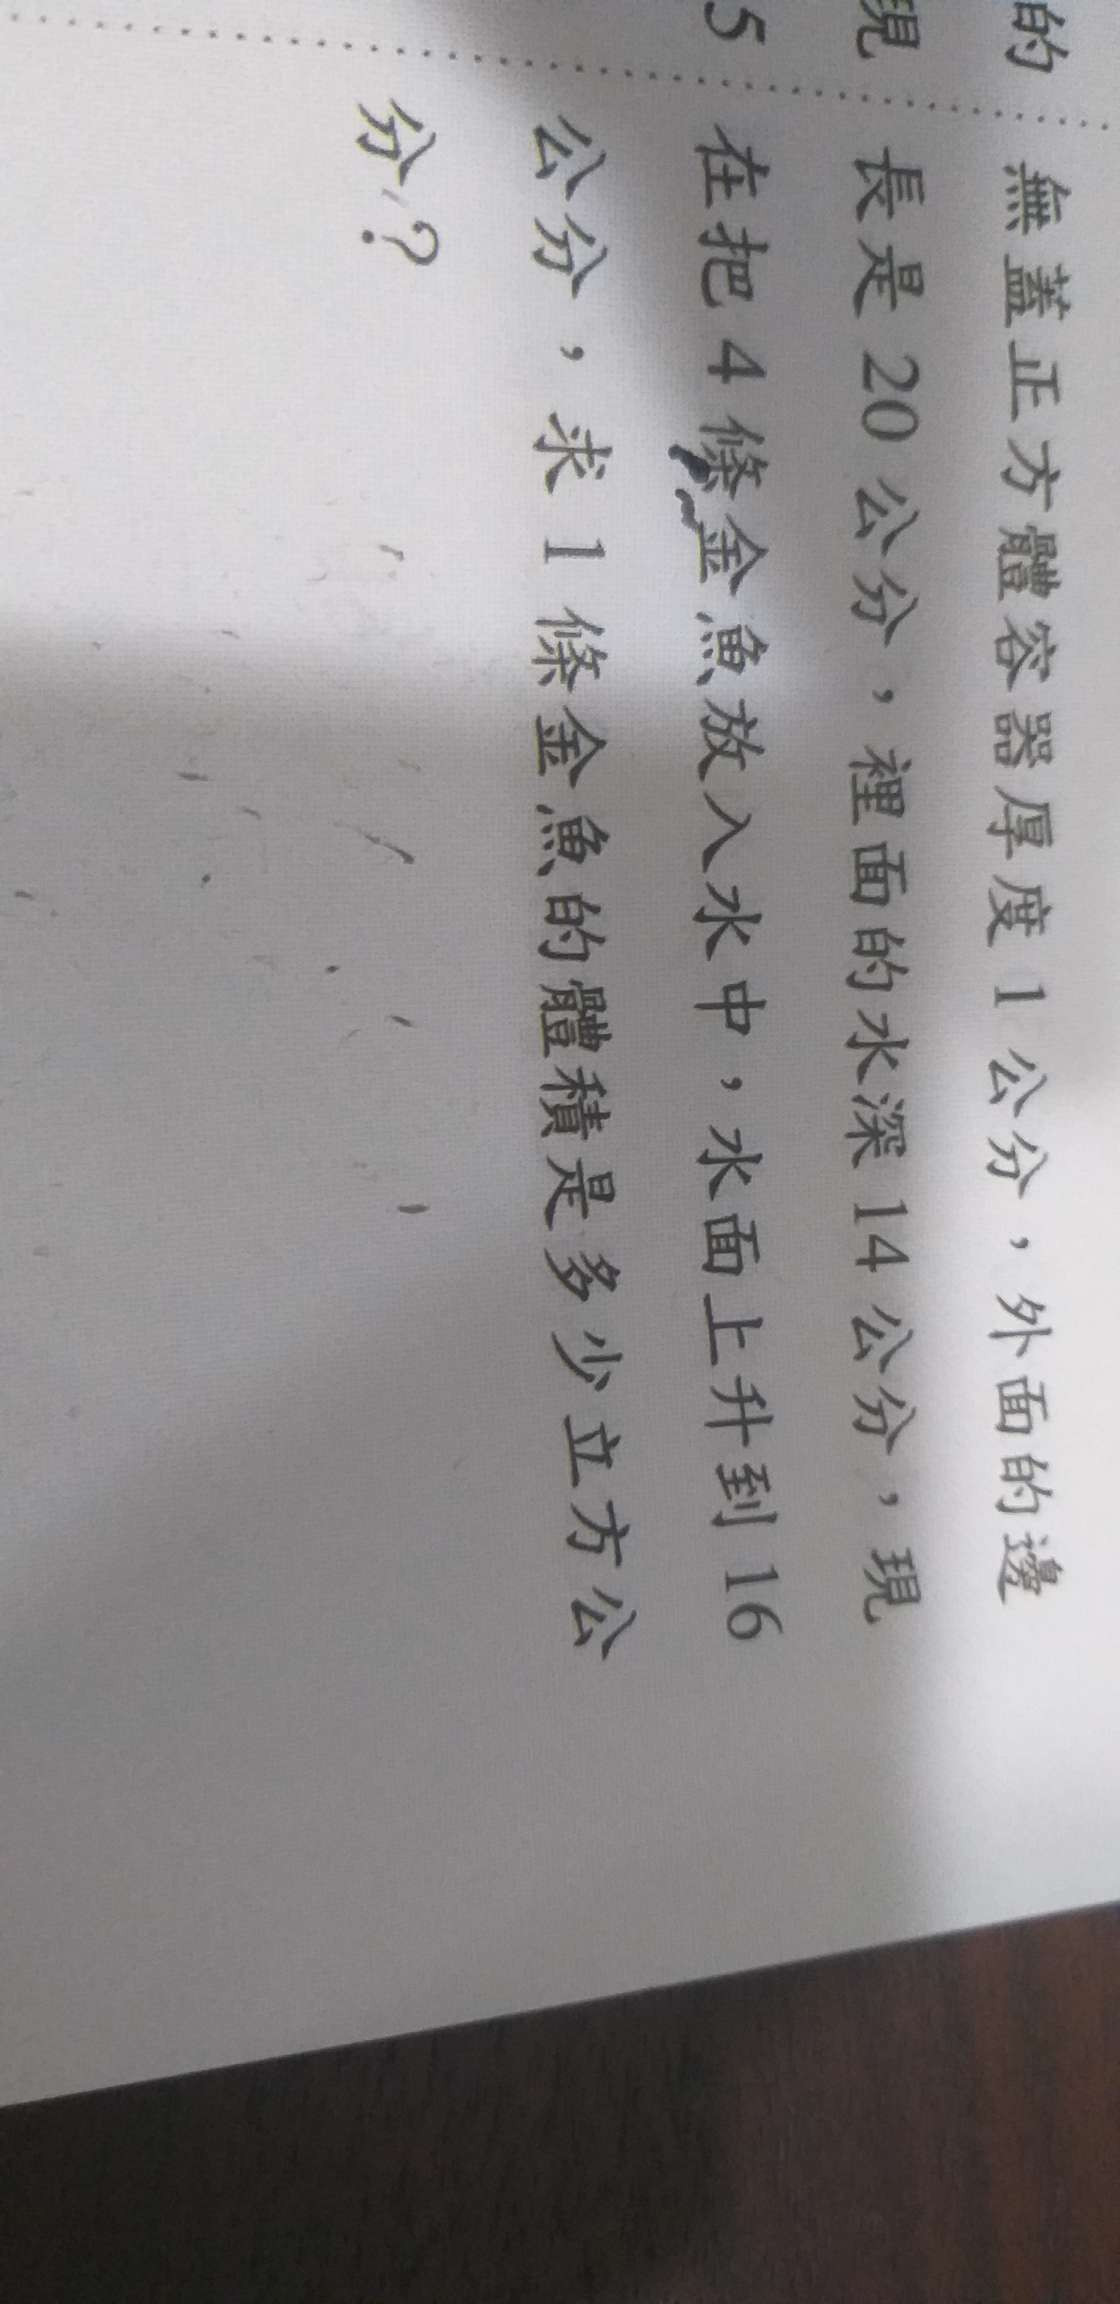 的
現
5
無蓋正方體容器厚度1公分，外面的邊
長是20公分，裡面的水深14公分，現
在把4條金魚放入水中，水面上升到16
公分，求1條金魚的體積是多少立方公
分？